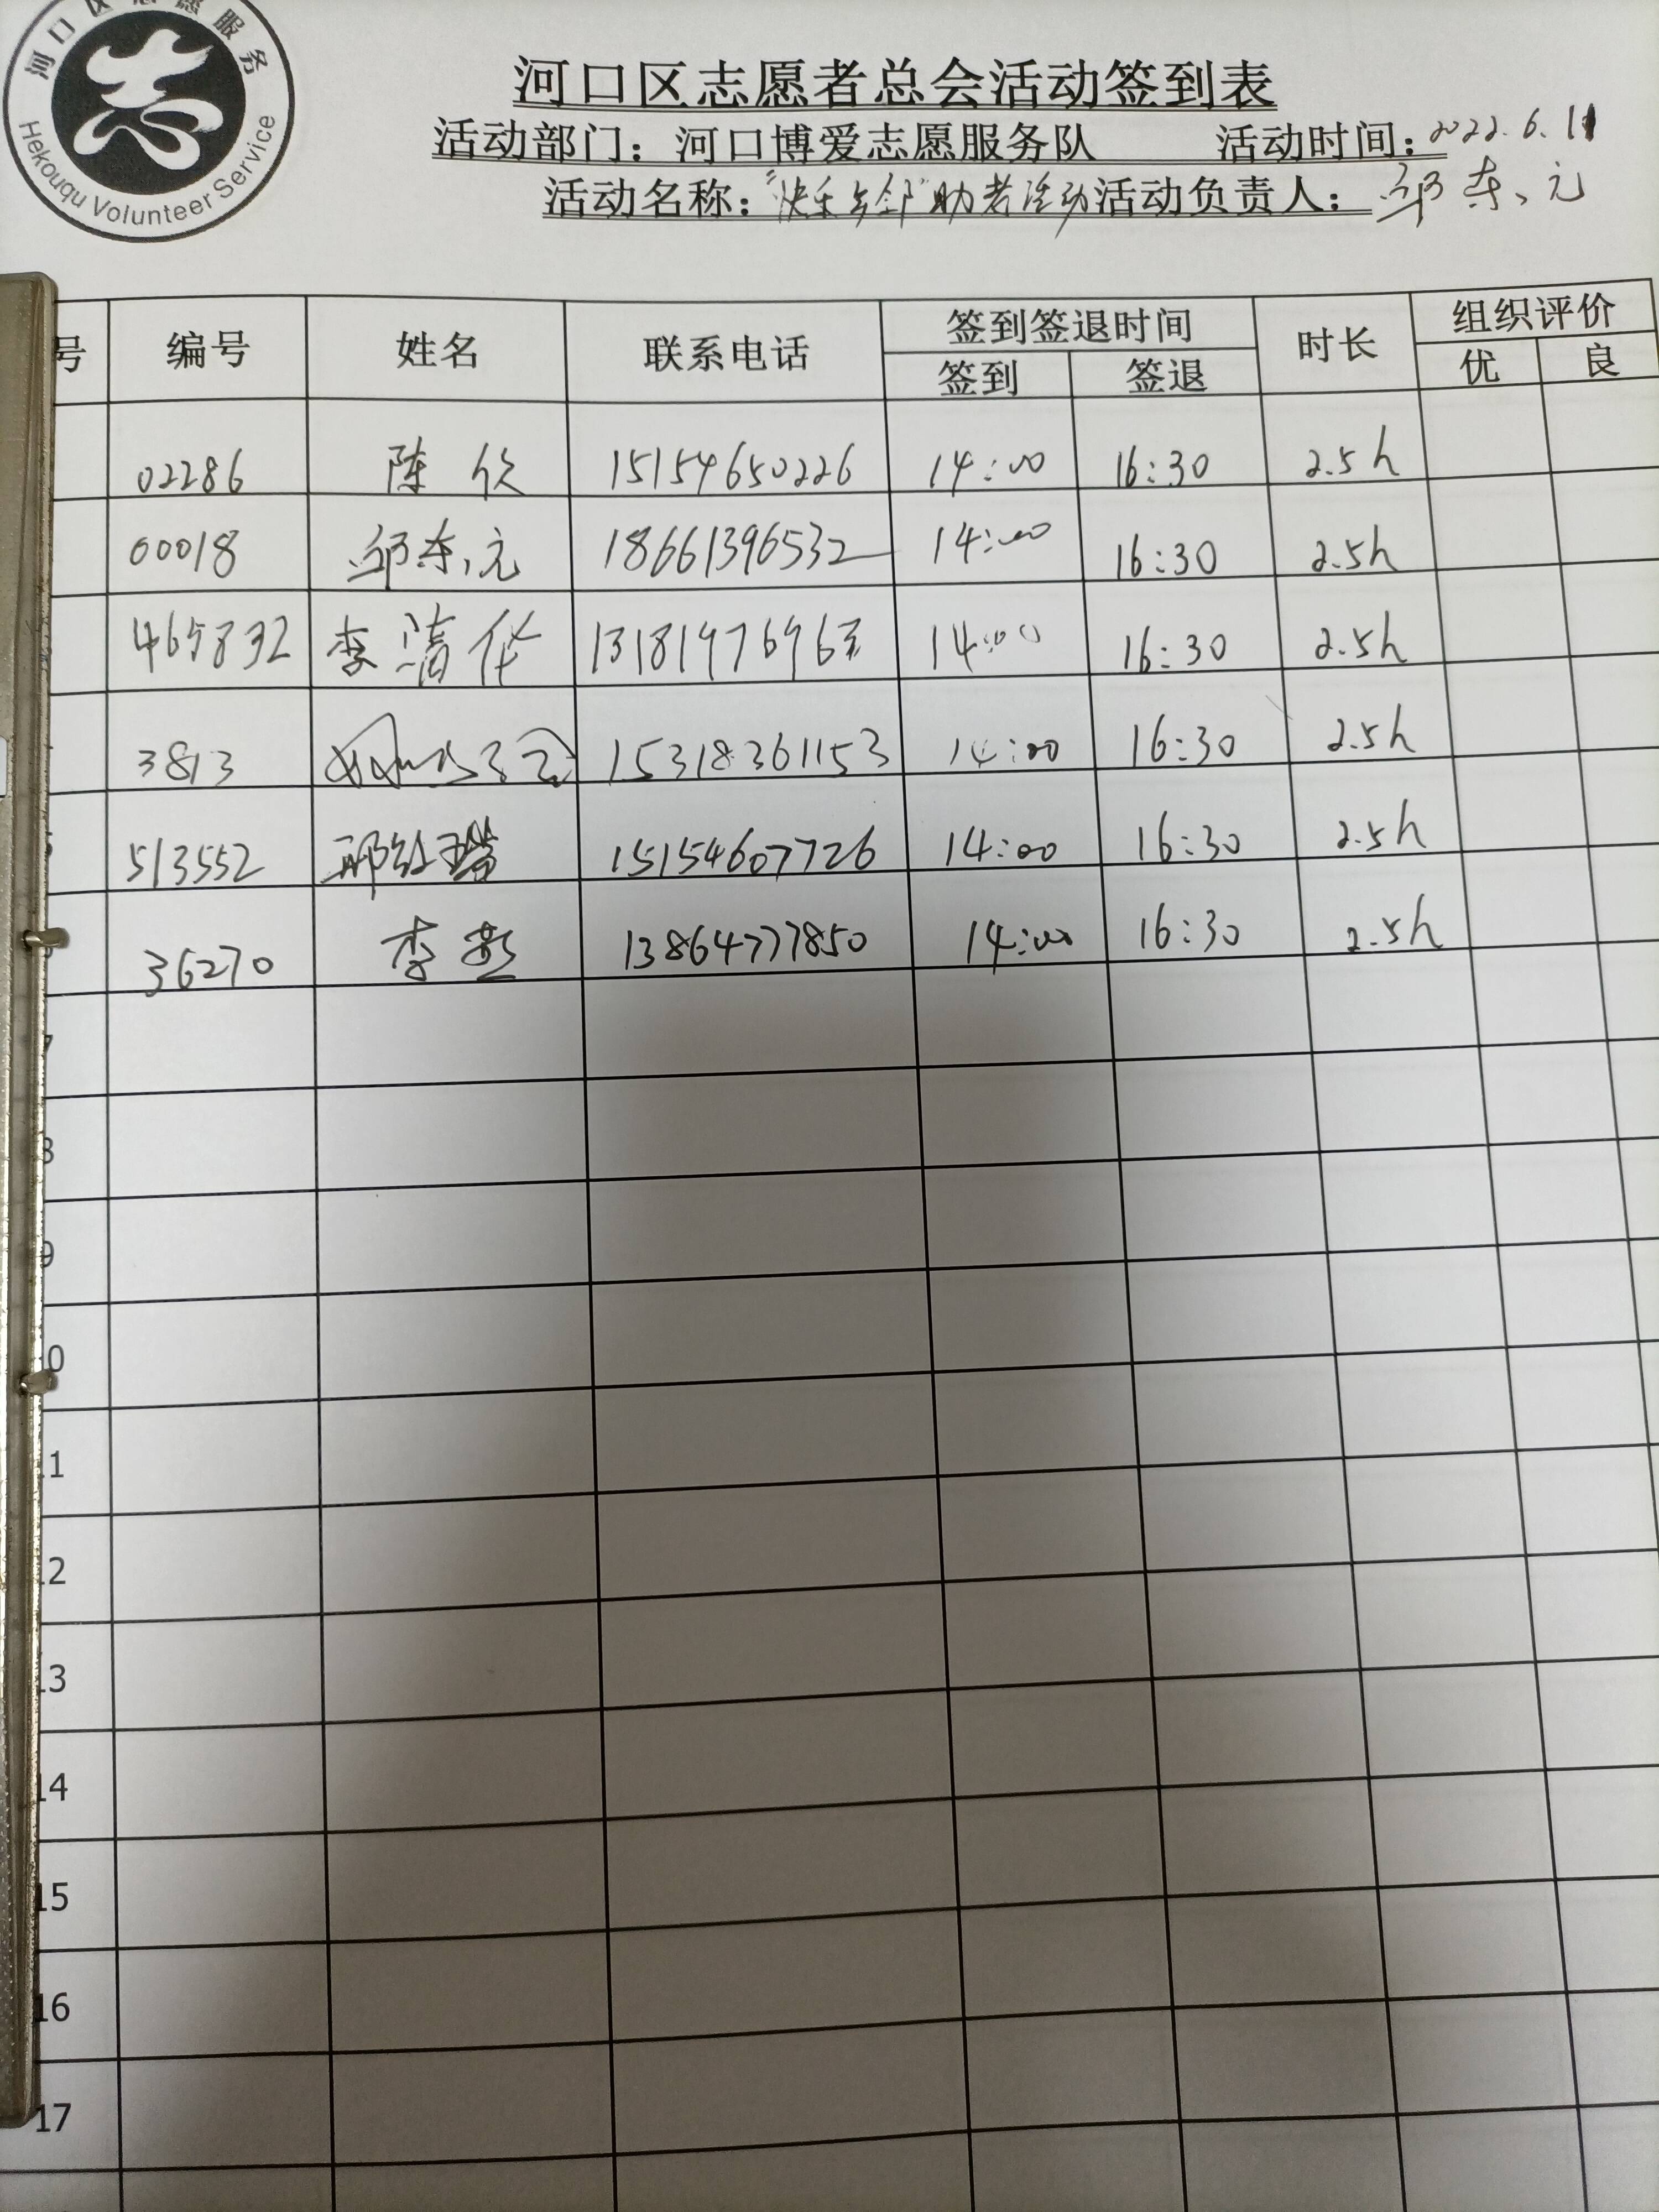 河口区志愿服务
Hekouqu Volunteer Service
河口区志愿者总会活动签到表
活动部门：河口博爱志愿服务队 活动时间：2022.6.11
活动名称："快乐与邻"助老活动 活动负责人：邱东元
号 编号 姓名 联系电话 签到签退时间 时长 组织评价
签到 签退 优 良
02286 陈欣 15154650226 14:00 16:30 2.5h
00018 邱东元 18661396532 14:00 16:30 2.5h
465832 李清华 14:00 16:30 2.5h
3813 15318361153 14:00 16:30 2.5h
513552 15154607726 14:00 16:30 2.5h
36270 李燕 13864777850 14:00 16:30 2.5h
7
8
9
10
11
12
13
14
15
16
17